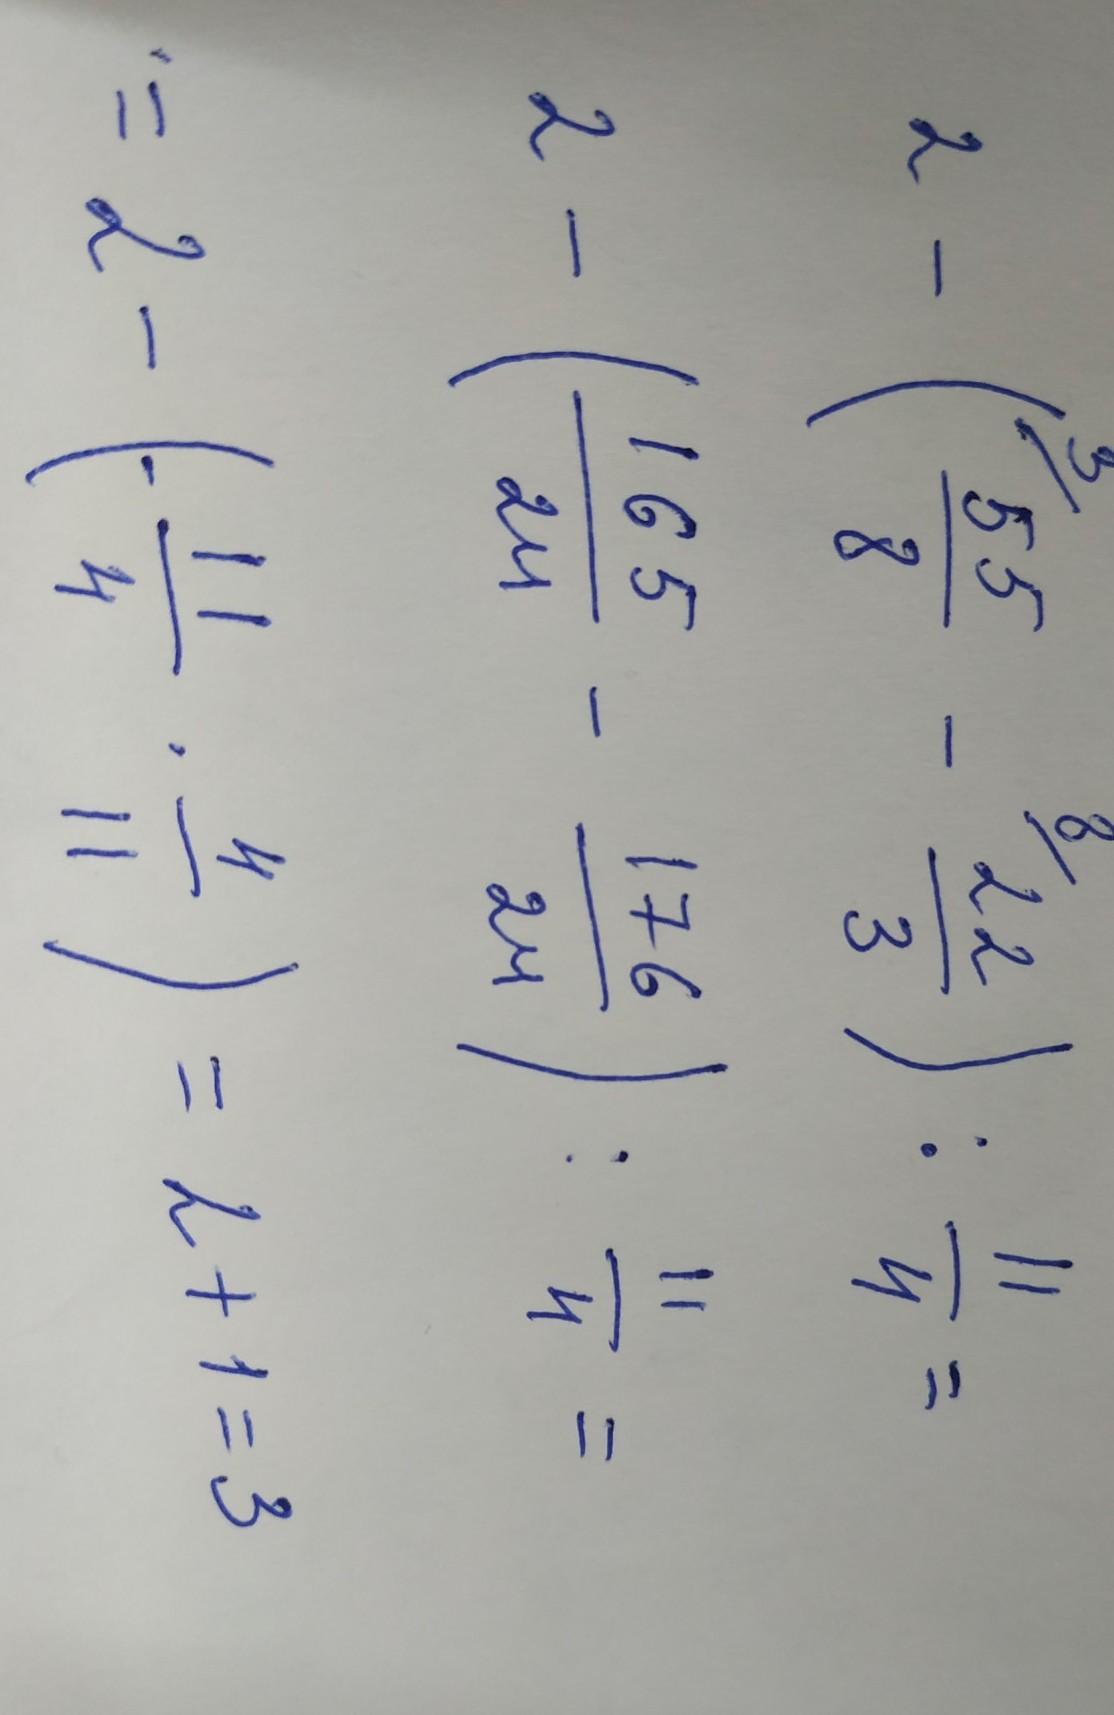 2 - (³⁄55/8 - ⁸⁄22/3) : 11/4 =
2 - (165/24 - 176/24) : 11/4 =
= 2 - (-11/4 · 4/11) = 2 + 1 = 3